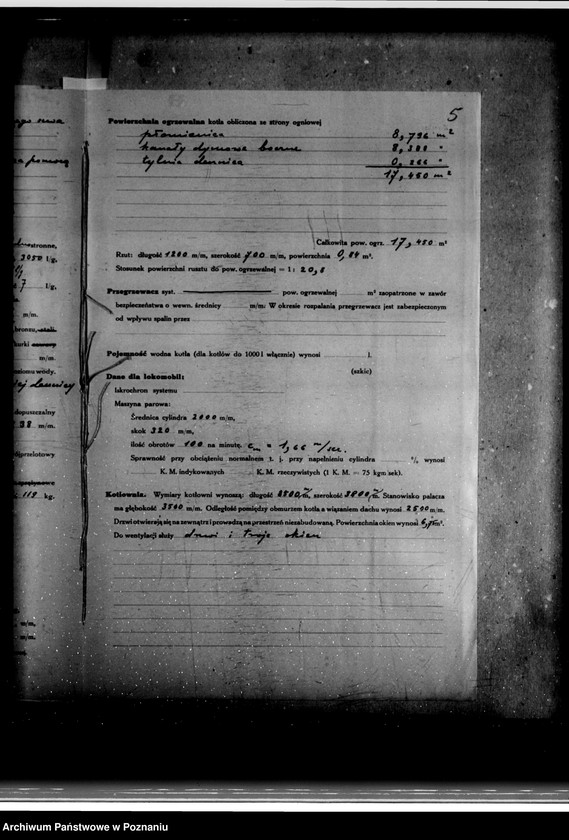 5
Powierzchnia ogrzewalna kotła obliczona ze strony ogniowej
płomienica 8,796 m²
kanały dymowe boczne 8,388 "
tylna dennica 0,266 "
17,450 m²
Całkowita pow. ogrz. 17,450 m²
Rzut: długość 1200 m/m, szerokość 700 m/m, powierzchnia 0,84 m².
Stosunek powierzchni rusztu do pow. ogrzewalnej = 1: 20,8
Przegrzewacz syst. pow. ogrzewalnej m² zaopatrzone w zawór
bezpieczeństwa o wewn. średnicy m/m. W okresie rozpalania przegrzewacz jest zabezpieczonym
od wpływu spalin przez
Pojemność wodna kotła (dla kotłów do 1000 l włącznie) wynosi l.
(szkic)
Dane dla lokomobil:
Iskrochron systemu
Maszyna parowa:
Średnica cylindra 2000 m/m,
skok 320 m/m,
ilość obrotów 100 na minutę, cm = 1,66 m/sec.
Sprawność przy obciążeniu normalnem t. j. przy napełnieniu cylindra % wynosi
K. M. indykowanych K. M. rzeczywistych (1 K. M. = 75 kgm/sek).
Kotłownia. Wymiary kotłowni wynoszą: długość 8500 m/m, szerokość 3800 m/m. Stanowisko palacza
ma głębokość 3500 m/m. Odległość pomiędzy obmurzem kotła a wiązaniem dachu wynosi 2500 m/m.
Drzwi otwierają się na zewnątrz i prowadzą na przestrzeń niezabudowaną. Powierzchnia okien wynosi m².
Do wentylacji służy drzwi i troje okien
za pomocą
stronne,
3050 l/g,
7 l/g,
m/m.
bronzu, stali.
kurki
m/m.
poziomu wody.
dennicy
dopuszczalny
38 m/m.
przelotowy
119 kg.
m/m,
m/m.
Archiwum Państwowe w Poznaniu